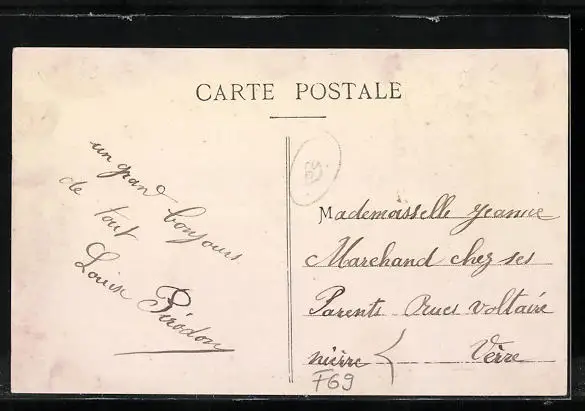 CARTE POSTALE
un grand bonjours
de tout
Louise Pérodon
Mademoisselle Jeanne
Marchand chez ses
Parents Rues voltaire
nierre Verre
F69